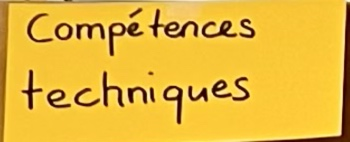 Compétences
techniques